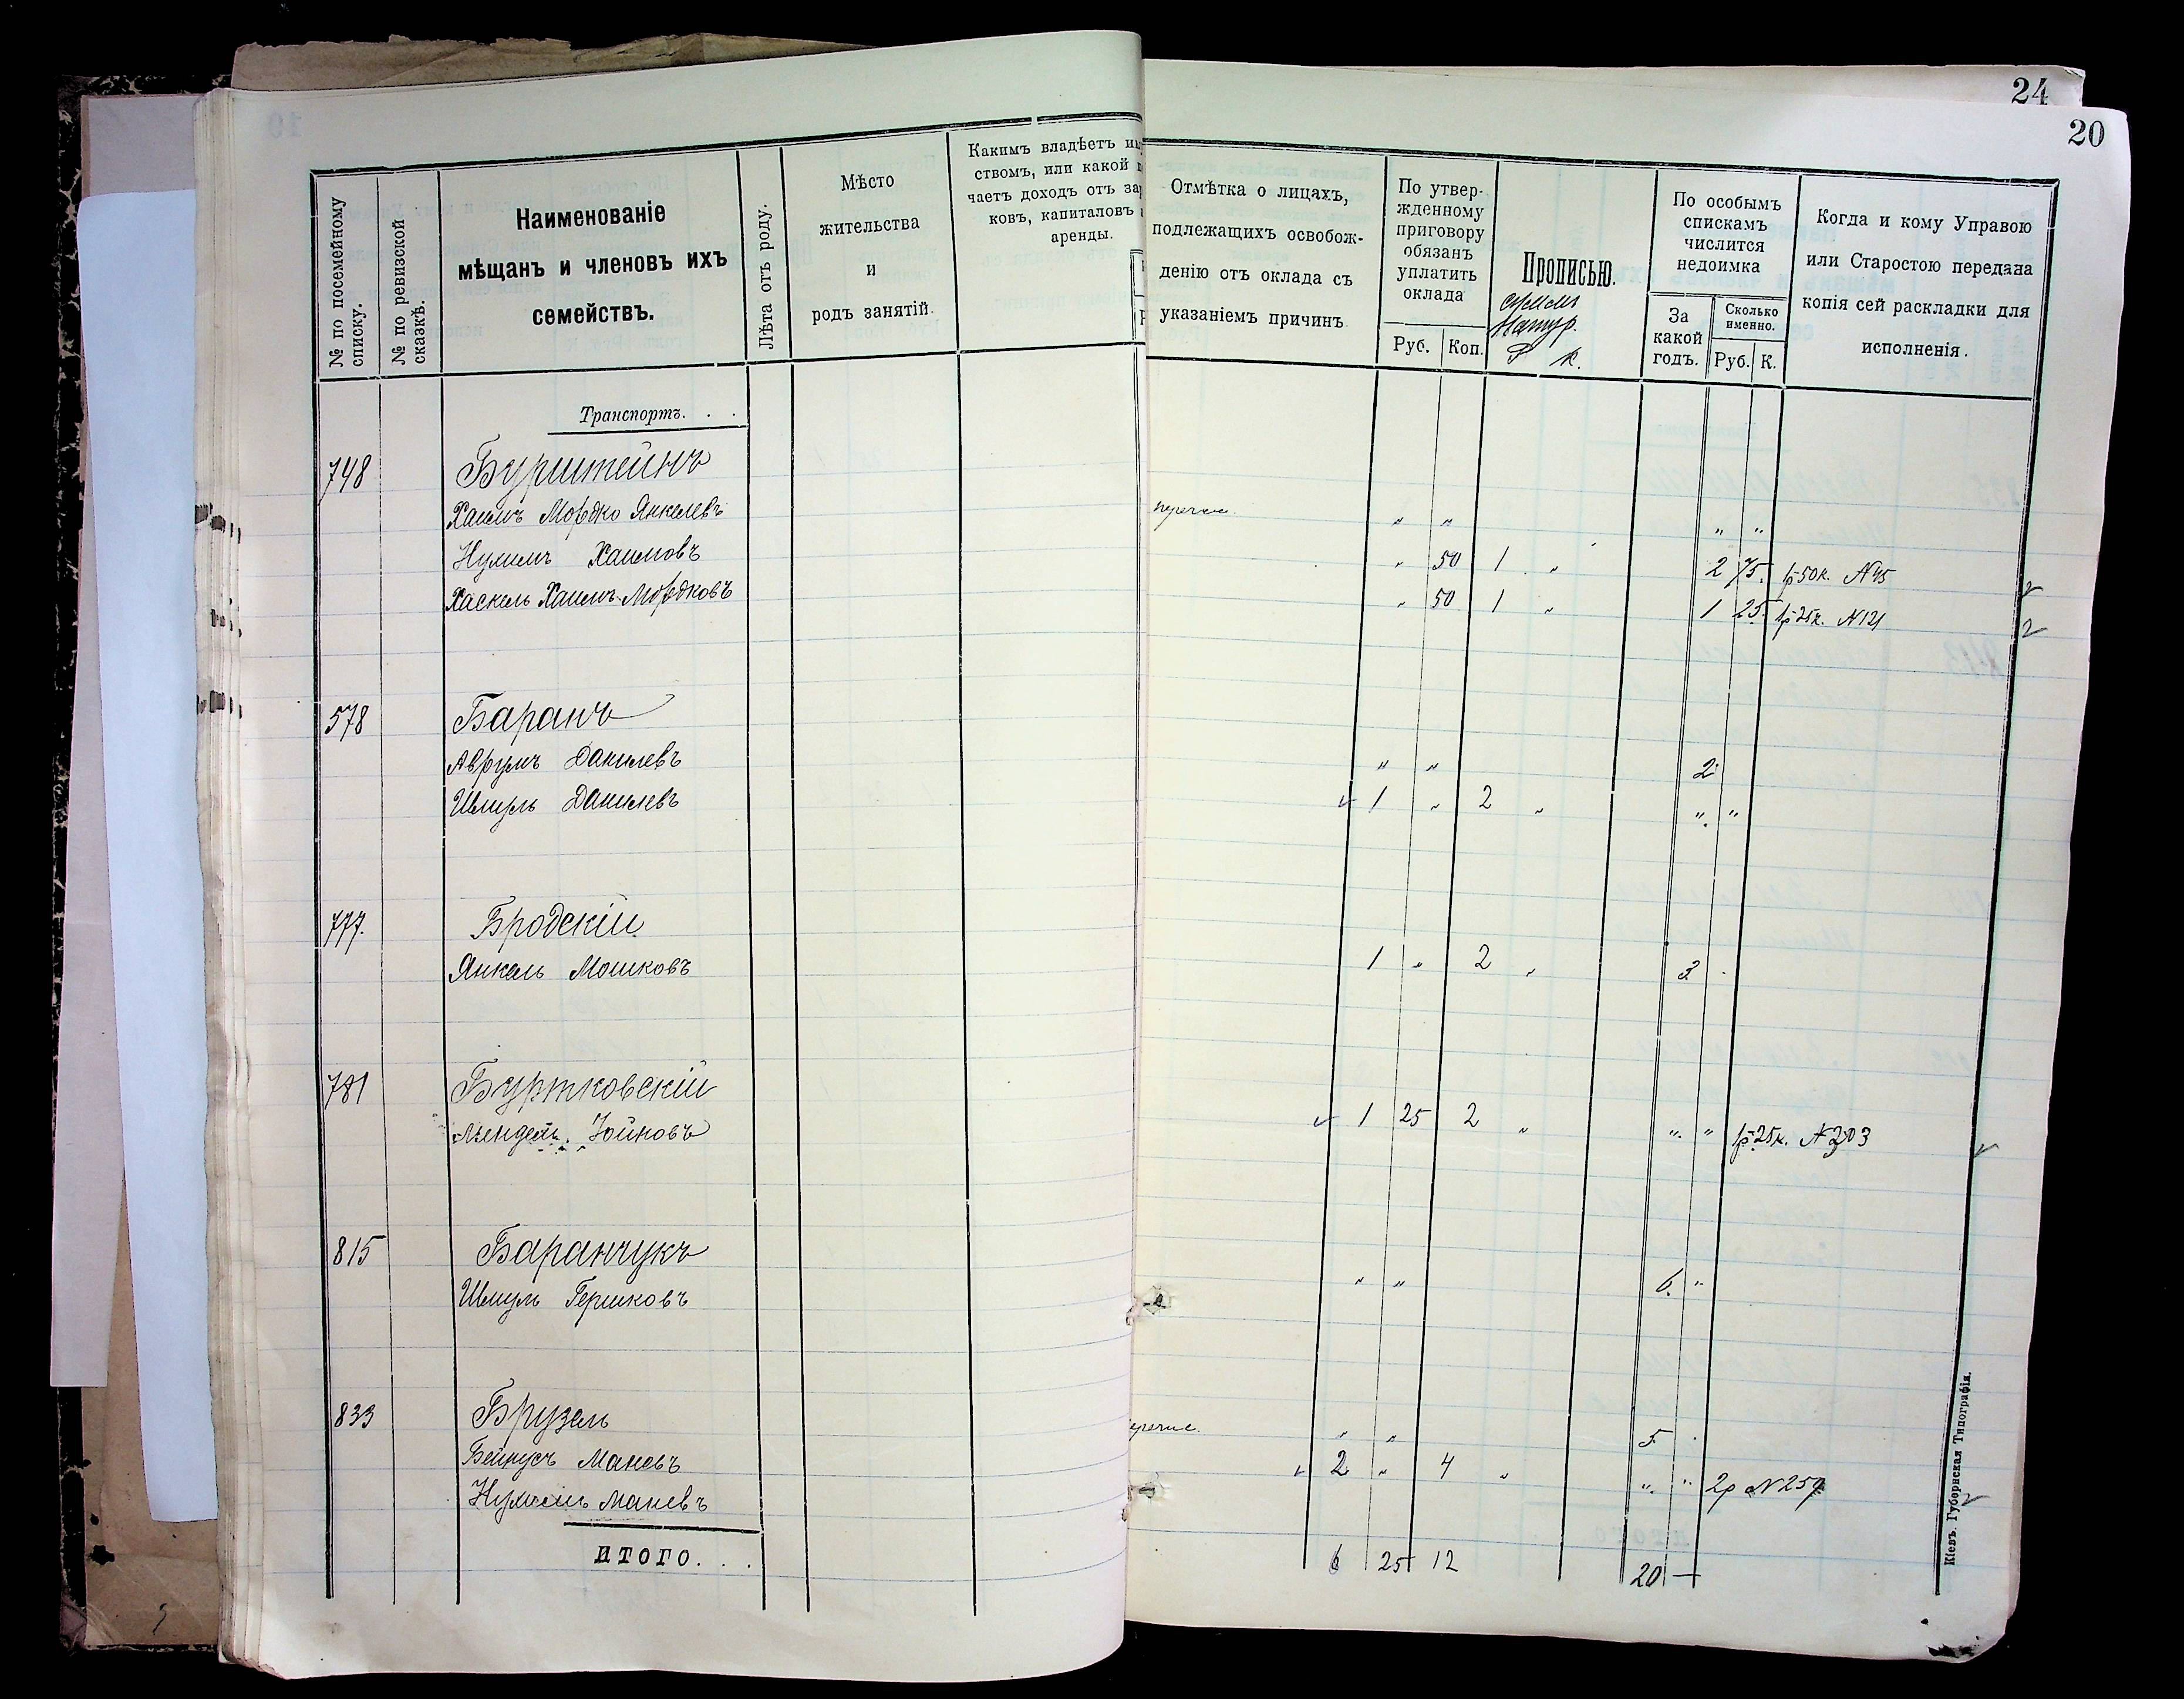 24
20
№ по посемейному списку.
№ по ревизской сказкѣ.
Наименованіе
мѣщанъ и членовъ ихъ
семействъ.
Лѣта отъ роду.
Мѣсто
жительства
и
родъ занятій.
Какимъ владѣетъ им
ствомъ, или какой п
чаетъ доходъ отъ зар
ковъ, капиталовъ и
аренды.
Отмѣтка о лицахъ,
подлежащихъ освобож-
денію отъ оклада съ
указаніемъ причинъ
По утвер-
жденному
приговору
обязанъ
уплатить
оклада
Руб. Коп.
Прописью.
Натур.
Р к.
По особымъ
спискамъ
числится
недоимка
За
какой
годъ.
Сколько
именно.
Руб. К.
Когда и кому Управою
или Старостою передана
копія сей раскладки для
исполненія.
Транспортъ. . .
748 Бурштейнъ
Хаимъ Мордко Янкелевъ перечис. " " " "
Нухимъ Хаимовъ " 50 1 " 2 75. 1р 50к. №45
Хаскель Хаимъ-Мордковъ " 50 1 " 1 25. 1р 25к. №121
578 Баранъ
Аврумъ Данилевъ " " 2
Шмуль Данилевъ 1 " 2 " " "
777. Бродскій
Янкель Мошковъ 1 " 2 " 3.
781 Буртковскій
Мендель Іойновъ 1 25 2 " " " 1р 25к. №203
815 Баранчукъ
Шмуль Гершковъ " " 6. "
833 Брузель
Бейнусъ Маневъ еречис. " " 5.
Нухимъ Маневъ 2 " 4 " " " 2р №259
ИТОГО. . . 6 25 12 20 —
Кіевъ. Губернская Типографія.